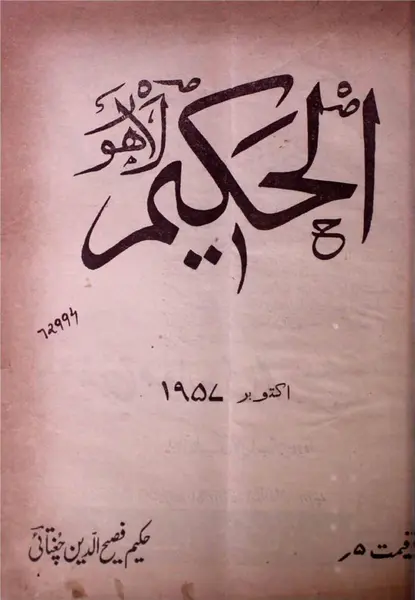 الحکیم
لاہور
72994
اکتوبر ۱۹۵۷
قیمت ۵ر
حکیم فصیح الدین چغتائی